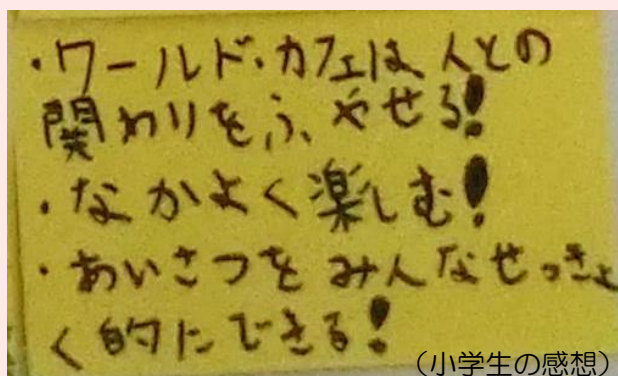 ・ワールド・カフェは、人との
関わりをふやせる!
・なかよく楽しむ!
・あいさつをみんなせっきょ
く的にできる!
(小学生の感想)